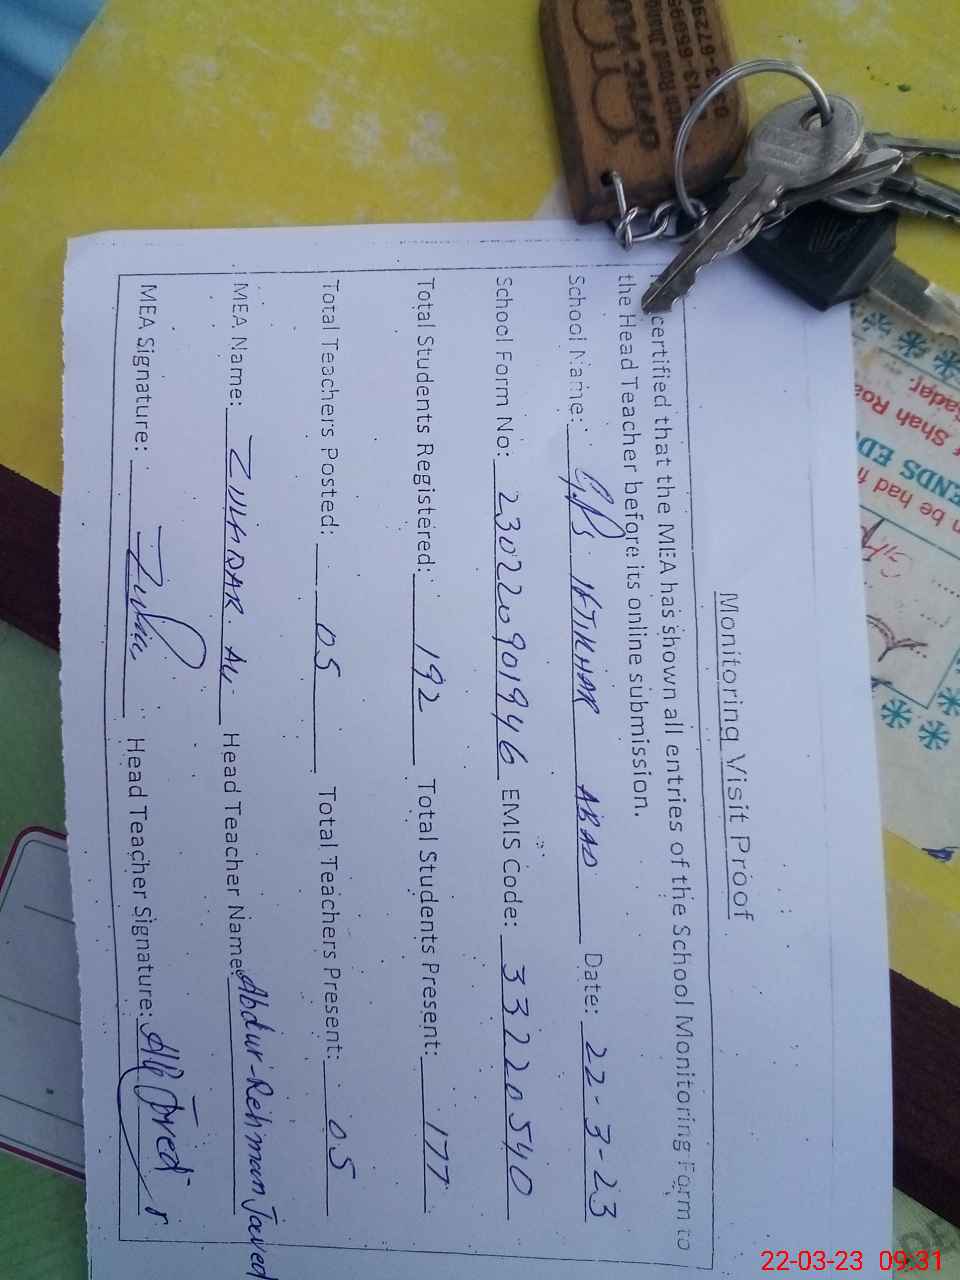 Monitoring Visit Proof
certified that the MEA has shown all entries of the School Monitoring Form to
the Head Teacher before its online submission.
School Name: GPS IFTIKHAR ABAD Date: 22-3-23
School Form No: 230220901946 EMIS Code: 33220540
Total Students Registered: 192 Total Students Present: 177
Total Teachers Posted: 05 Total Teachers Present: 05
MEA Name: ZULFIQAR Ali Head Teacher Name: Abdur-Rehman Javed
MEA Signature: Head Teacher Signature: Javed
OPTIC
Road Jhang
Shah Road
Sadar.
ENDS ED
be had f
22-03-23 09:31